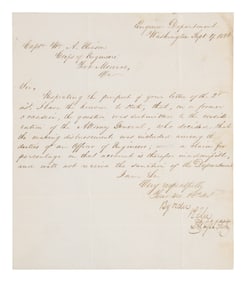 Engineer Department
Washington Sept 17, 18
Capt. W. A.
Corps of Engineers
Fort Monroe,
Va.
Sir,
Respecting the purport of your letter of the 2d
inst. I have the honor to state, that, on a former
occasion, the question was submitted to the consid-
eration of the Attorney General, who decided, that
the making disbursements was included among the
duties of an Officer of Engineers; and a claim for
percentage on that account is therefore inadmissible,
and will not receive the sanction of the Department.
I am Sir
Very respectfully
By order